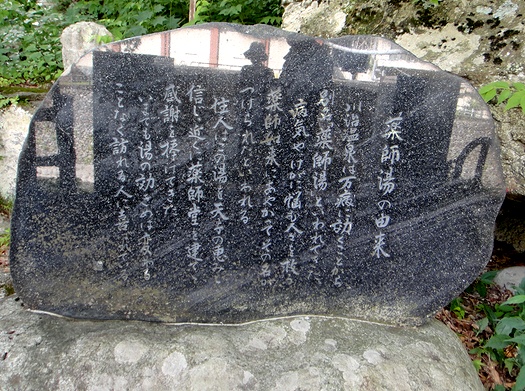 薬師湯の由来
川治温泉は万病に効くことから
別名薬師湯といわれてきた
病気やけがに悩む人々を救う
薬師如来にあやかってその名が
つけられたといわれる
住人はこの湯を天与の恵みと
信じ近くに薬師堂を建て
感謝を捧げてきた
いまも湯の効きめは変わる
ことなく訪れる人に喜ばれている